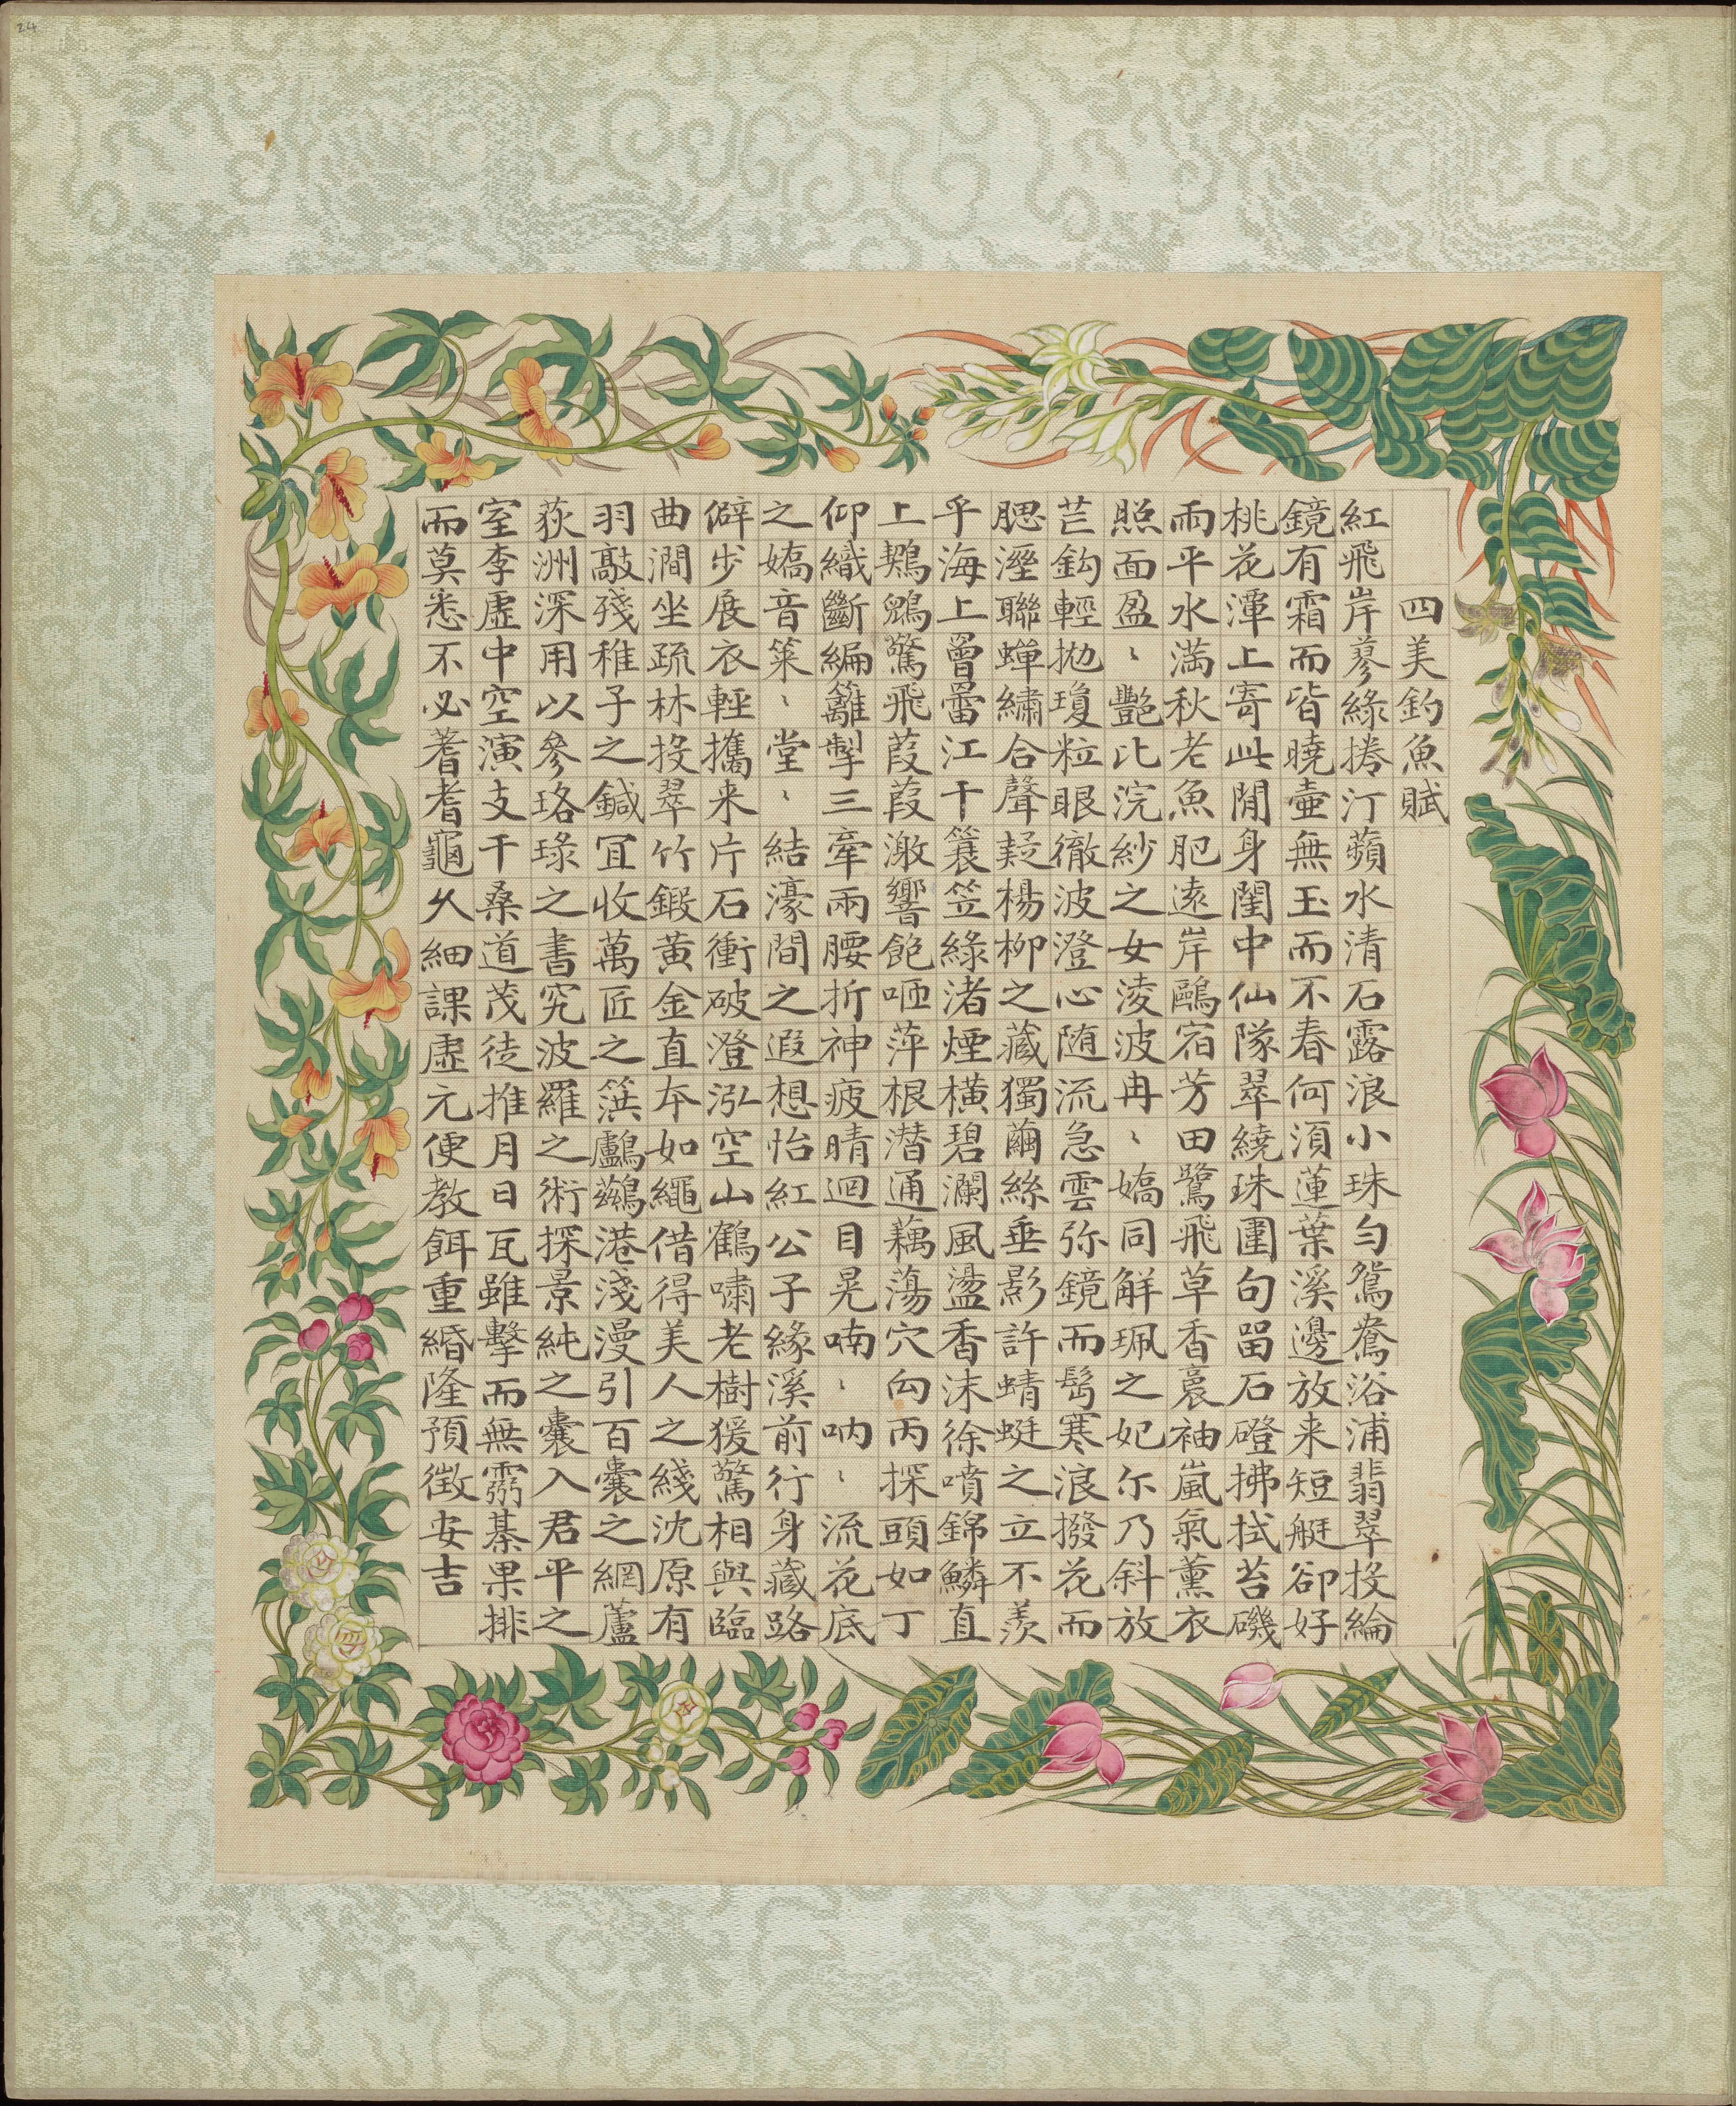 24
四美釣魚賦
紅飛岸蓼綠捲汀蘋水清石露浪小珠勻鴛鴦浴浦翡翠投綸
鏡有霜而皆曉壺無玉而不春何須蓮葉溪邊放来短艇卻好
桃花潭上寄此閒身閨中仙隊翠繞珠圍句留石磴拂拭苔磯
雨平水滿秋老魚肥遠岸鷗宿芳田鷺飛草香裛袖嵐氣薰衣
照面盈〻艷比浣紗之女淩波冉〻嬌同解珮之妃尔乃斜放
芒鈎輕拋瓊粒眼徹波澄心随流急雲弥鏡而髩寒浪撥花而
腮溼聯蟬繡合聲疑楊柳之藏獨繭絲垂影許蜻蜓之立不羨
乎海上曾罾江干簑笠綠渚煙橫碧瀾風盪香沫徐噴錦鱗直
上鷄鶒驚飛葭葭激響飽咂萍根潜通藕蕩穴向丙探頭如丁
仰織斷編籬掣三牽兩腰折神疲晴迴目晃喃〻吶〻流花底
之嬌音策〻堂〻結濠間之遐想怡紅公子緣溪前行身藏路
僻步展衣輕攜来片石衝破澄泓空山鶴嘯老樹猨驚相與臨
曲澗坐疏林投翠竹鍛黃金直夲如繩借得美人之綫沈原有
羽敲殘稚子之鍼冝收萬匠之篊鸕鷀港淺漫引百囊之網蘆
荻洲深用以參珞琭之書究波羅之術探景純之囊入君平之
室李虛中空演支干桑道茂徒推月日瓦雖擊而無靈棊果排
而莫悉不必蓍耆龜久細課虛元便教餌重緡隆預徵安吉